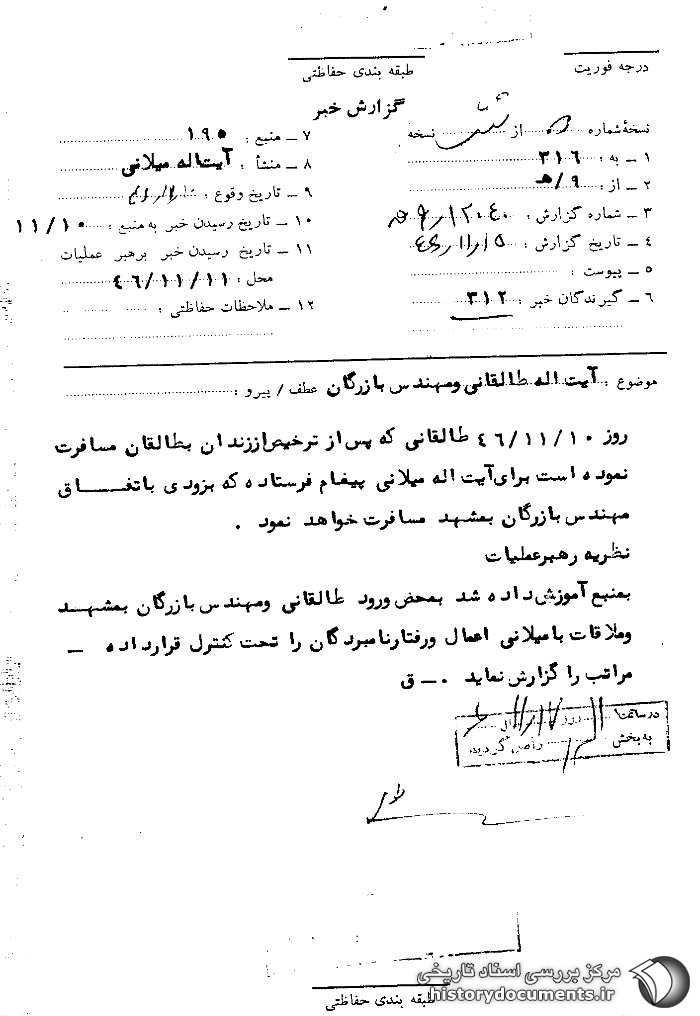 درجه فوریت
طبقه بندی حفاظتی
گزارش خبر
نسخهٔ شماره از نسخه
۱ ــ به : ۳۱۶
۲ ــ از : ۹/هـ
۳ ــ شماره گزارش :
۴ ــ تاریخ گزارش :
۵ ــ پیوست :
۶ ــ گیرندگان خبر : ۳۱۲
۷ ــ منبع : ۱۹۵
۸ ــ منشأ : آیت‌اله میلانی
۹ ــ تاریخ وقوع :
۱۰ ــ تاریخ رسیدن خبر به منبع : ۱۱/۱۰
۱۱ ــ تاریخ رسیدن خبر برهبر عملیات
محل : ۴۶/۱۱/۱۱
۱۲ ــ ملاحظات حفاظتی :
موضوع : آیت اله طالقانی ومهندس بازرگان عطف / پیرو :
روز ۴۶/۱۱/۱۰ طالقانی که پس از ترخیص اززندان بطالقان مسافرت
نموده است برای آیت اله میلانی پیغام فرستاده که بزودی باتفـــاق
مهندس بازرگان بمشهد مسافرت خواهد نمود .
نظریه رهبرعملیات
بمنبع آموزش داده شد بمحض ورود طالقانی ومهندس بازرگان بمشهـد
وملاقات بامیلانی اعمال ورفتارنامبردگان را تحت کنترل قرارداده ــ
مراتب را گزارش نماید .ــ ق
در ساعت روز
به بخش واصل گردید
طبقه بندی حفاظتی
مرکز بررسی اسناد تاریخی
historydocuments.ir